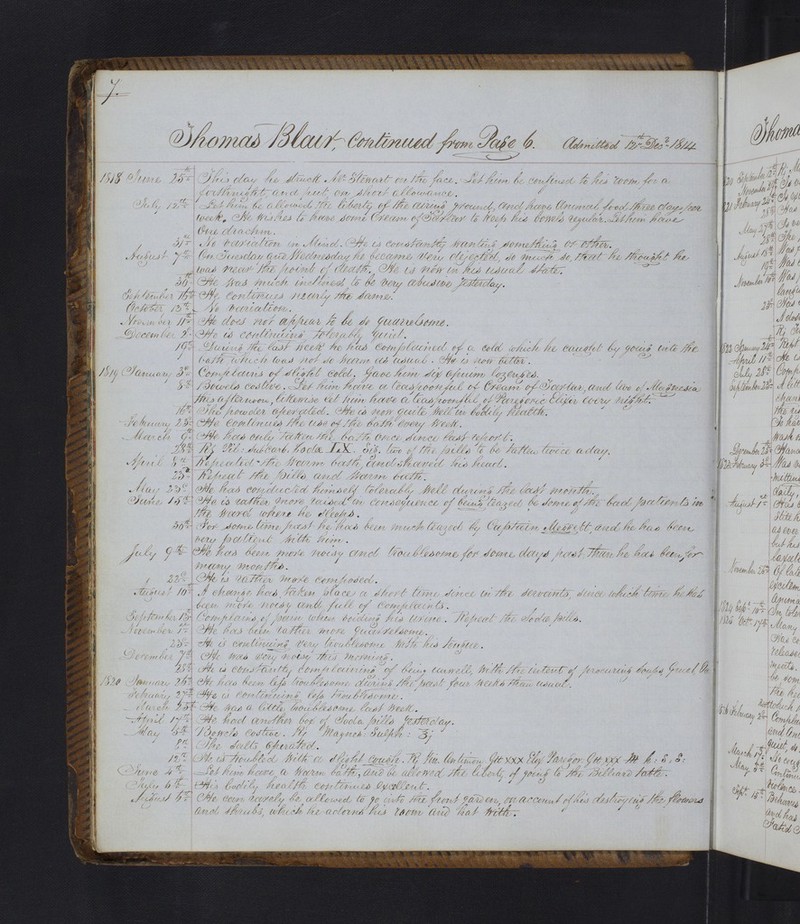 7.
Thomas Blair Continued from Page 6. Admitted 12th Decr 1814
1818 June 25th This day he struck Mr Stewart on the face. Let him be confined to his room for a
forthnight, and put on short allowance.
July 12th Let him be allowed the liberty of the airing ground, and have Animal food three days per
week. He wishes to have some Cream of Tartar to keep his bowels regular. Let him have
One drachm.
31st No variation in Mind. He is constantly wanting something or other.
August 7th On Tuesday and Wednesday he became very dejected, so much so, that he thought he
was near the point of death. He is now in his usual state.
30th He was much inclined to be very abusive yesterday.
September 16th He continues nearly the same.
October 13th No variation.
November 11th He does not appear to be so quarrelsome.
December 2d He is continuing tolerably quiet.
19th During the last week he has complained of a cold which he caught by going into the
bath which was not so warm as usual. He is now better.
1819 January 3d Complains of slight cold, Gave him six opium lozenges.
8th Bowels costive. Let him have a teaspoonful of Cream of Tartar, and two of Magnesia
this afternoon, likewise let him have a teaspoonful of Paregoric Elixir every night.
16th The powder operated. He is now quite well in bodily health.
February 25th He continues the use of the bath every week.
March 9th He has only taken the bath once since last report.
28th Rx Pil: subcarb. Soda LX. Sig. two of the pills to be taken twice a day.
April 5th Repeated the warm bath, and shaved his head.
25th Repeat the Pills and warm bath.
May 23d He has conducted himself tolerably well during the last month.
June 15th He is rather more raised in consequence of being teazed by some of the bad patients in
the Ward where he sleeps.
30th For some time past he has been much teazed by Captain, and he has been
very patient with him.
July 9th He has been more noisy and troublesome for some days past, than he has been for
many months.
22d He is rather more composed.
August 10th A change has taken place a short time since in the servants, since which time he has
been more noisy and full of complaints.
September 13th Complains of pain when voiding his urine. Repeat the Soda pills.
November 1st He has been rather more quarrelsome.
25th He is continuing very troublesome with his tongue.
December 7th He was very noisy this morning.
25th He is constantly complaining of being unwell, with the intent of procuring soups Gruel &c
1820 January 26th He has been less troublesome during the past four weeks than usual.
February 27th He is continuing less troublesome.
March 25th He was a little troublesome last week.
April 17th He had another box of Soda pills yesterday.
May 5th Bowels costive. Rx Magnes: Sulph: ℥j
8th The salts operated.
12th He is troubled with a slight cough. Rx Vin. Antimon Gtt xxx Elix Paregor. Gtt xxx M h: s: s:
June 4th Let him have a warm bath, and be allowed the liberty of going to the Billiard table.
July 6th His bodily health continues excellent.
August 6th He can scarcely be allowed to go into the front garden, on account of his destroying the flowers
and shrubs, which he adorns his room and hat with.